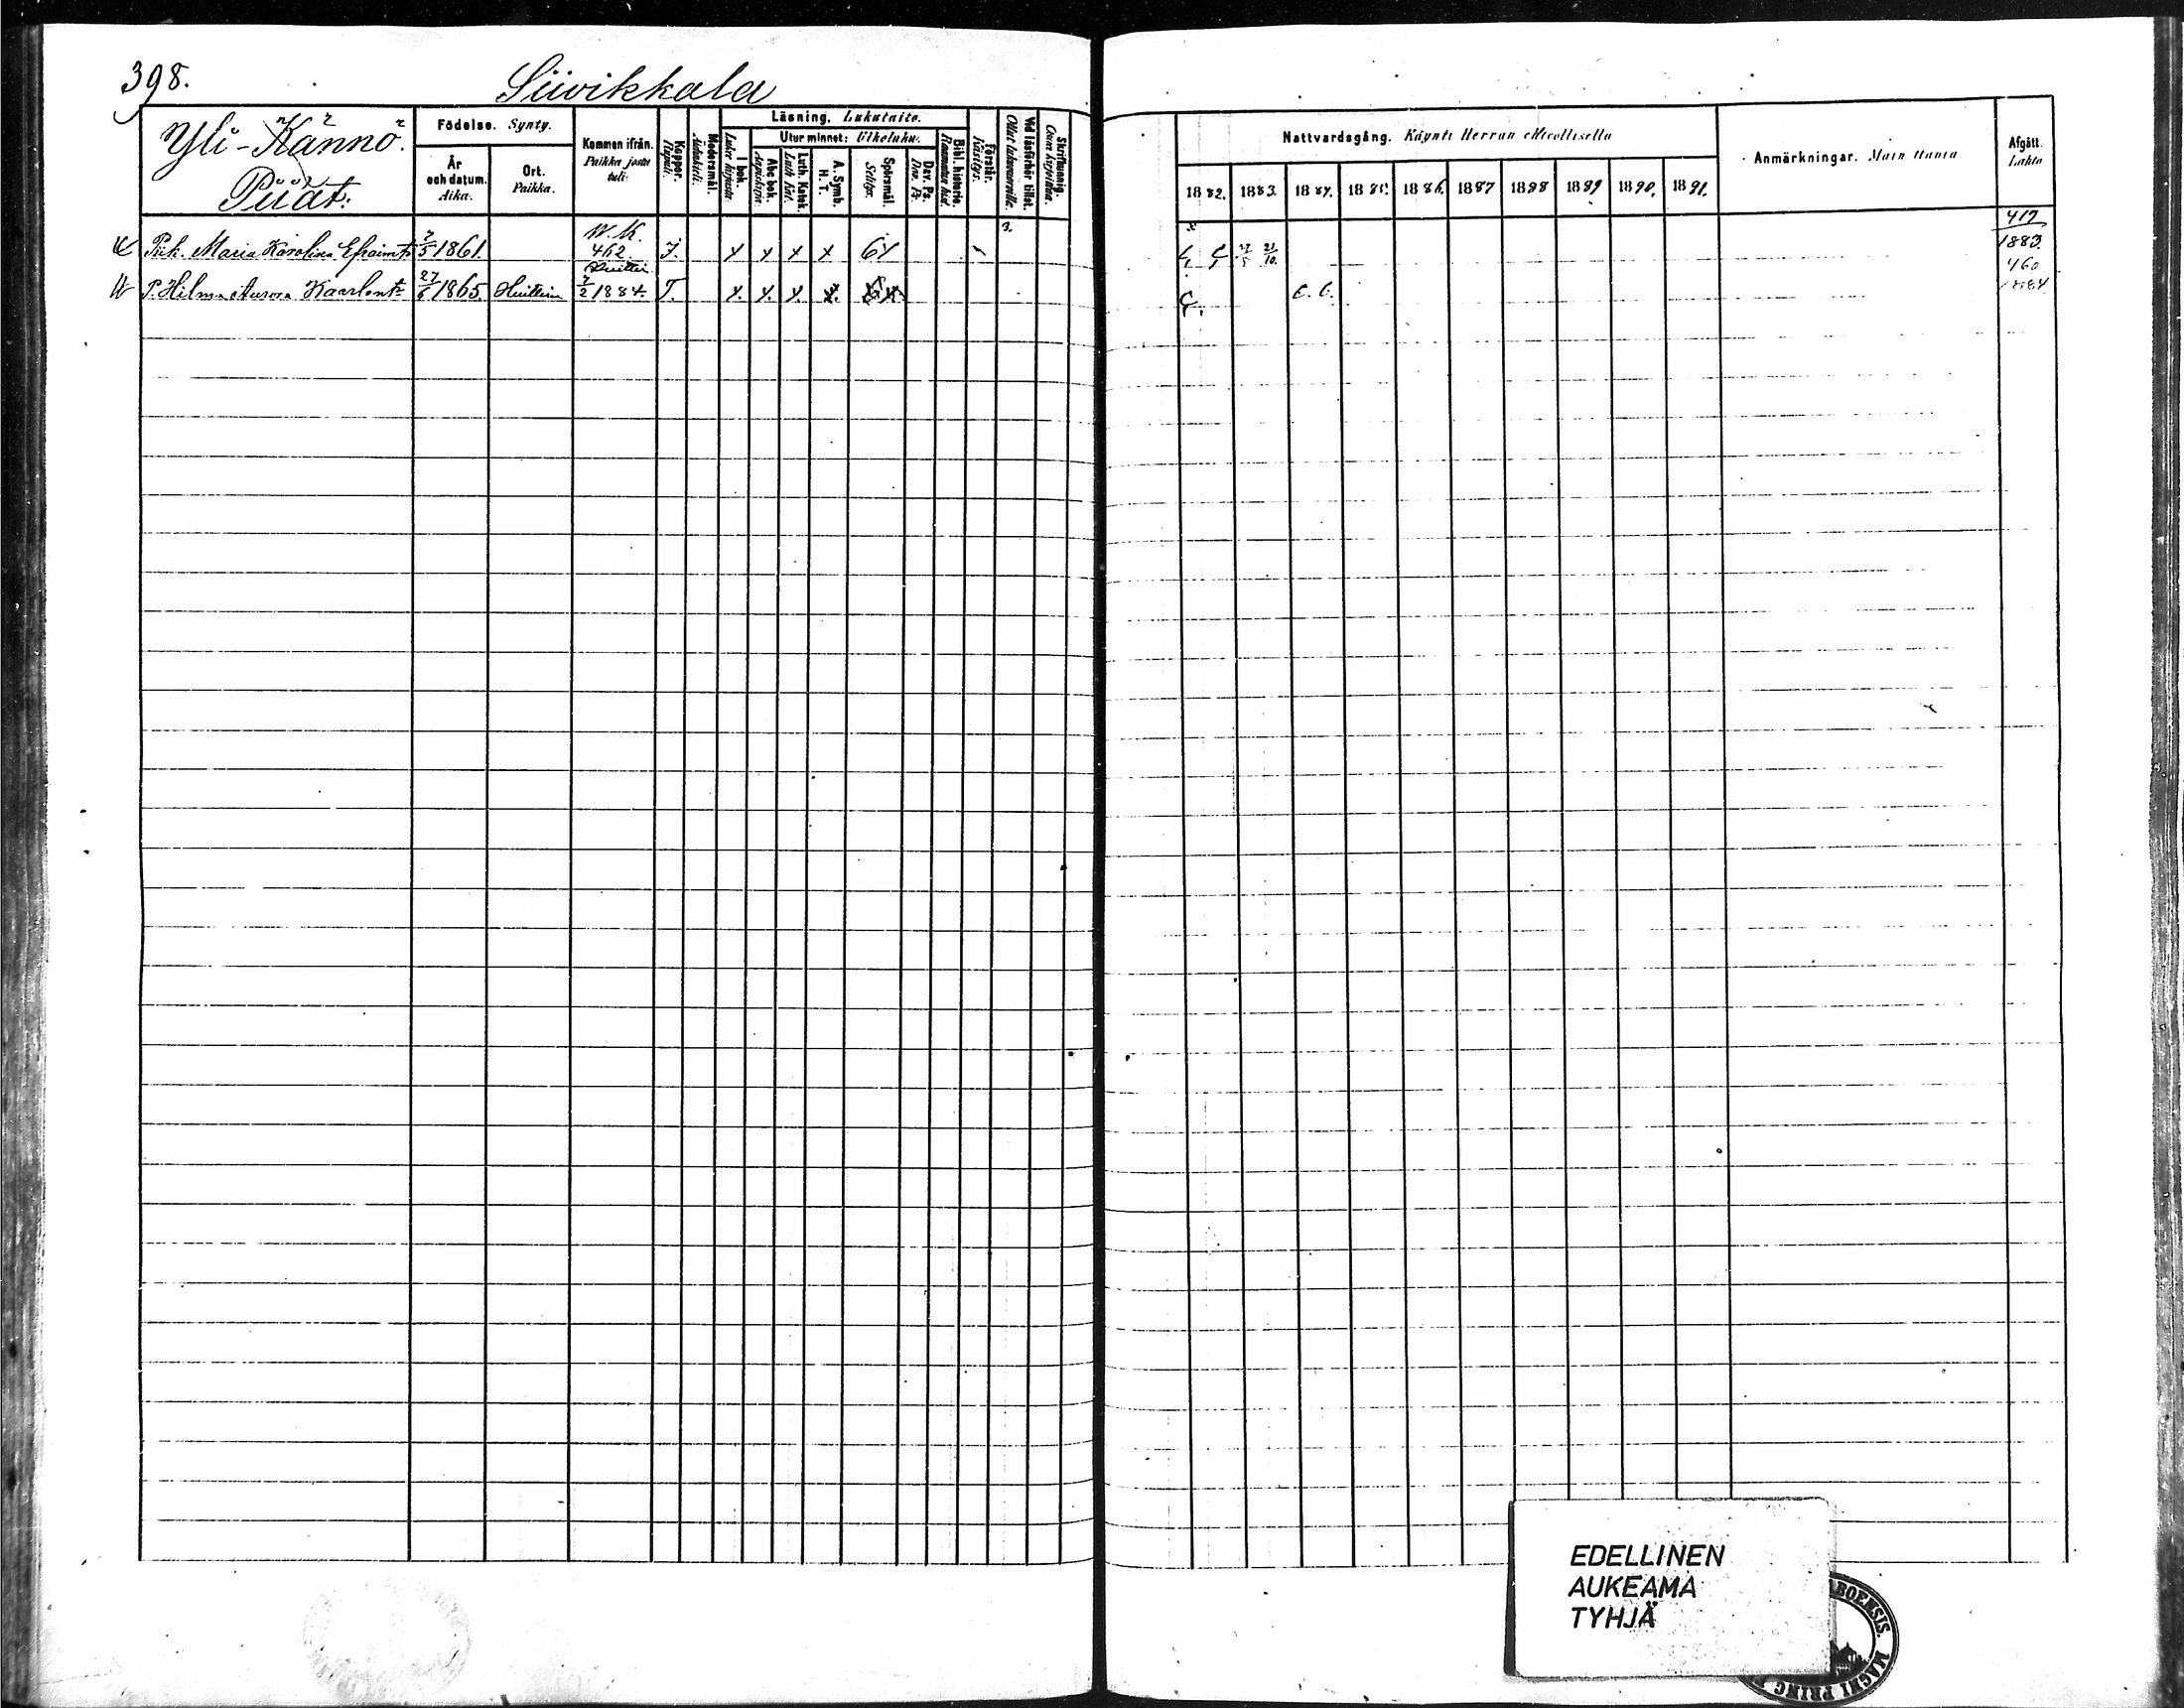 398.
Siivikkala
Yli-Kännö.
Piiat:
Födelse. Synty.
År och datum. Aika.
Ort. Paikka.
Kommen ifrån. Paikka josta tuli.
Koppor. Rupuli.
Modersmål. Äidinkieli.
Läsning. Lukutaito.
I bok. Lukee kirjasta.
Utur minnet: Ulkoluku.
Abc bok. Aapiskirja
Luth. Katek. Luth. Kat.
A. Symb. H. T.
Spörsmål. Selitys.
Dav. Ps. Dav. Ps.
Bibl. historie. Raamatun hist.
Förstår. Käsitys.
Vid läsförhör tillst. Ollut lukuvuorolla.
Skrifkunnig. Osaa kirjoittaa.
Nattvardsgång. Käynti Herran Ehtoollisella
1882. 1883. 1884. 1885. 1886. 1887 1898 1889 1890. 1891.
Anmärkningar. Muistutuksia
Afgått. Lähtö
Piik. Maria Karolina Efraimt. 2/5 1861. W. K. 462. J. x x x x 6x 3. 27/5 21/10. 417 1883.
P. Hilma Aurora Kaarlont. 27/6 1865. Huittin Huittin 7/2 1884. T. x. x. x. x. C. C. 460 1884
EDELLINEN
AUKEAMA
TYHJÄ
ABOENSIS. MAGNI PRINC